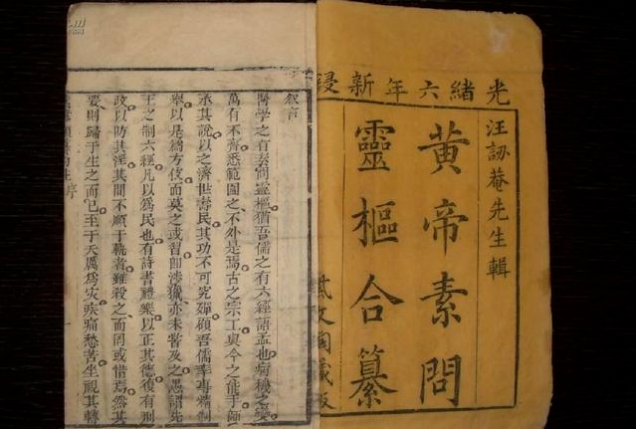 光緒六年新
汪訒菴先生輯
黃帝素問
靈樞合纂
藏板
叙言
醫學之有素問靈樞猶吾儒之有六經語孟也病機之變
萬有不齊悉範圍之不外是焉古之宗工與今之能手師
承其說以之濟世壽民其功不可究殫顧吾儒率專精制
舉以是為方伎而莫之或習即涉獵亦未嘗及之愚謂先
王之制六經凡以為民也有詩書禮樂以正其德復有刑
政以防其淫其間不順于軌者雖殺之而罔或惜焉然其
要則歸于生之而已至于天厲為災疾痛愁苦坐視其轉
序